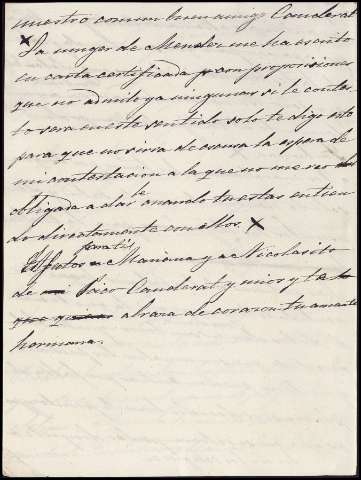 nuestro comun buen amigo Cauderal
x La muger de Mendez me ha escrito
en carta certificada y con proposiciones
que no admito ya ningunas si le contes-
to sera en este sentido solo te digo esto
para que no sirva de escusa la espera de
mi contestacion a la que no me veo
obligada a darle cuando tu estas entien-
do directamente con ellos. x
Afectos para ti Mariana y a Nicolasito
de Pico Cauderal y mios y te
que quiere abraza de corazon tu amante
hermana.